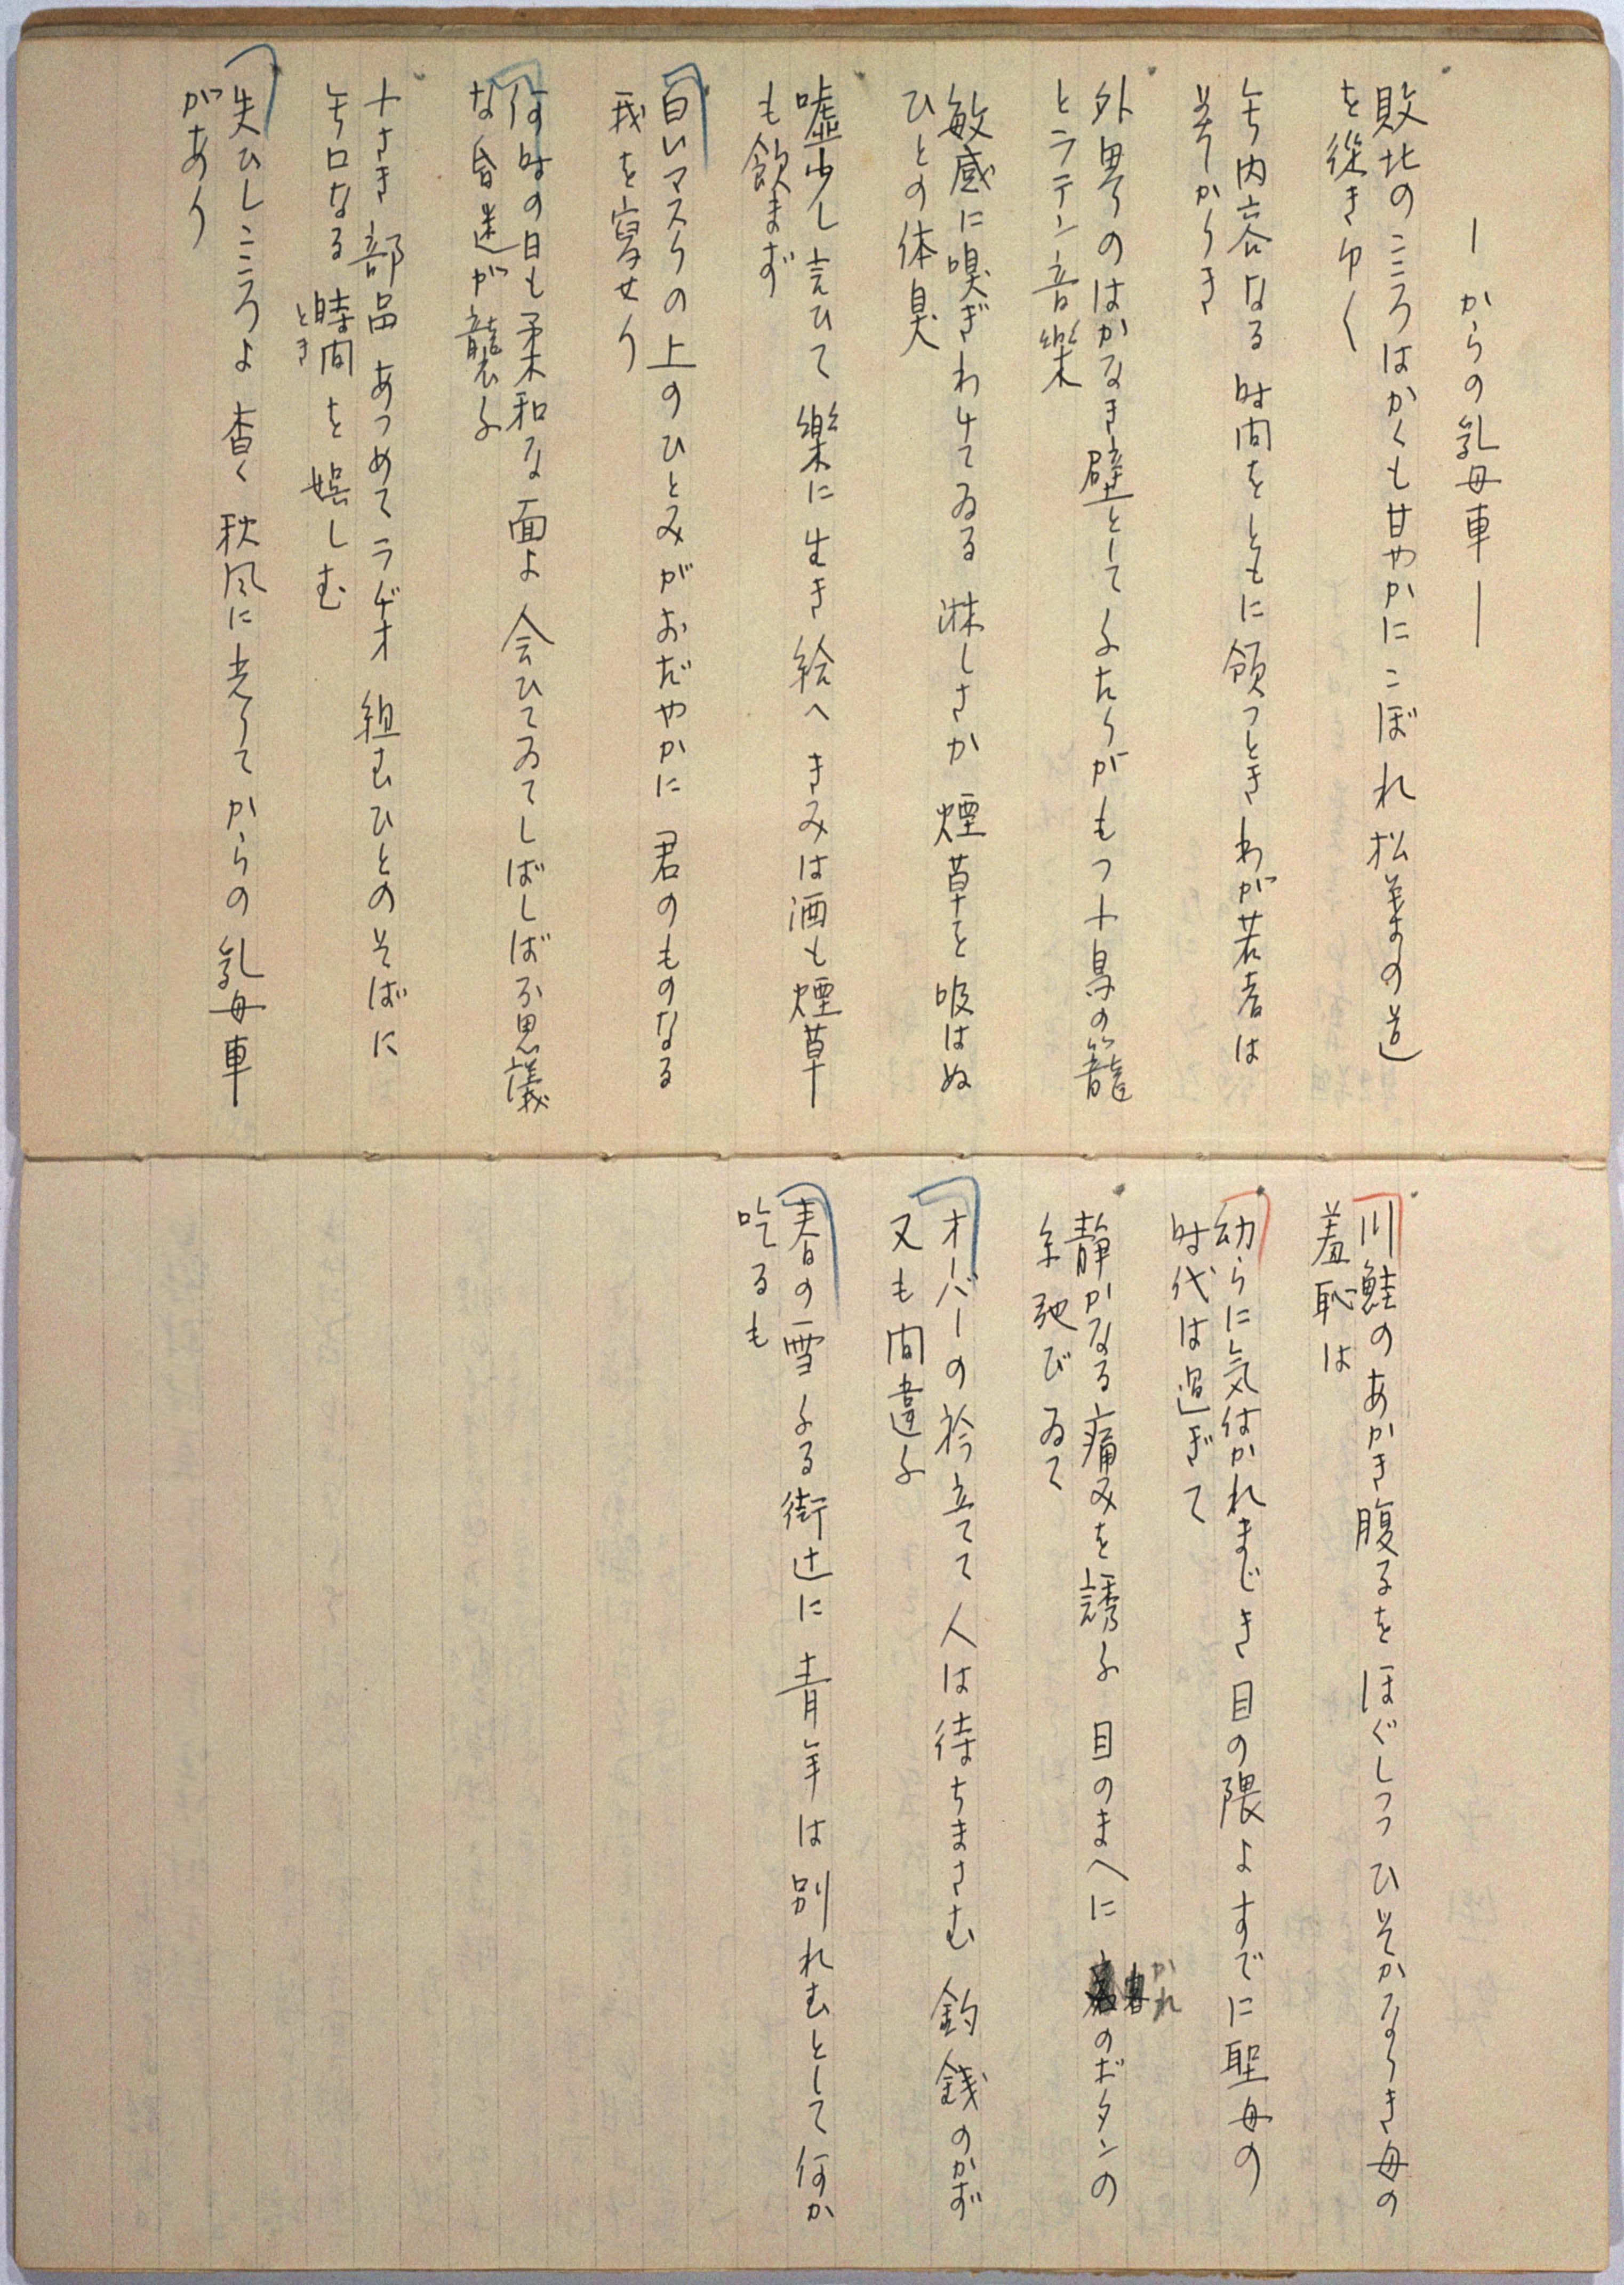 ―からの乳母車―
敗北のこころはかくも甘やかにこぼれ松葉の道
を従きゆく
無内容なる時間をともに頒つときわが若者は
美しかりき
外界のはかなき壁としてふたりがもつ小鳥の籠
とラテン音樂
敏感に嗅ぎわけてゐる淋しさか煙草を吸はぬ
ひとの体臭
嘘少し言ひて樂に生き給へきみは酒も煙草
も飲まず
白いマスクの上のひとみがおだやかに君のものなる
我を寫せり
何時の日も柔和な面よ会ひてゐてしばしば不思議
な昏迷が襲ふ
小さき部品あつめてラヂオ組むひとのそばに
無口なる時間を娯しむ
とき
失ひしこころよ杳く秋風に光りてからの乳母車
があり
川鮭のあかき腹るをほぐしつつひそかなりき母の
羞恥は
幼らに気付かれまじき目の隈よすでに聖母の
時代は過ぎて
静かなる痛みを誘ふ目のまへにかれのボタンの
糸弛びゐて
オーバーの衿立てて人は待ちまさむ釣銭のかず
又も間違ふ
春の雪ふる街辻に青年は別れむとして何か
吃るも